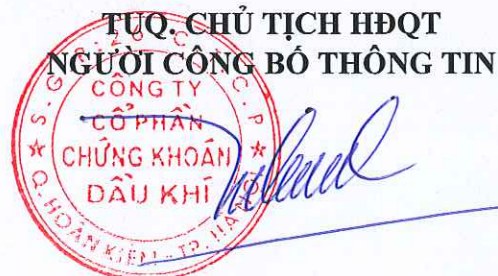 TUQ. CHỦ TỊCH HĐQT
NGƯỜI CÔNG BỐ THÔNG TIN
CÔNG TY
CỔ PHẦN
CHỨNG KHOÁN
DẦU KHÍ
Q. HOÀN KIẾM - TP. HÀ